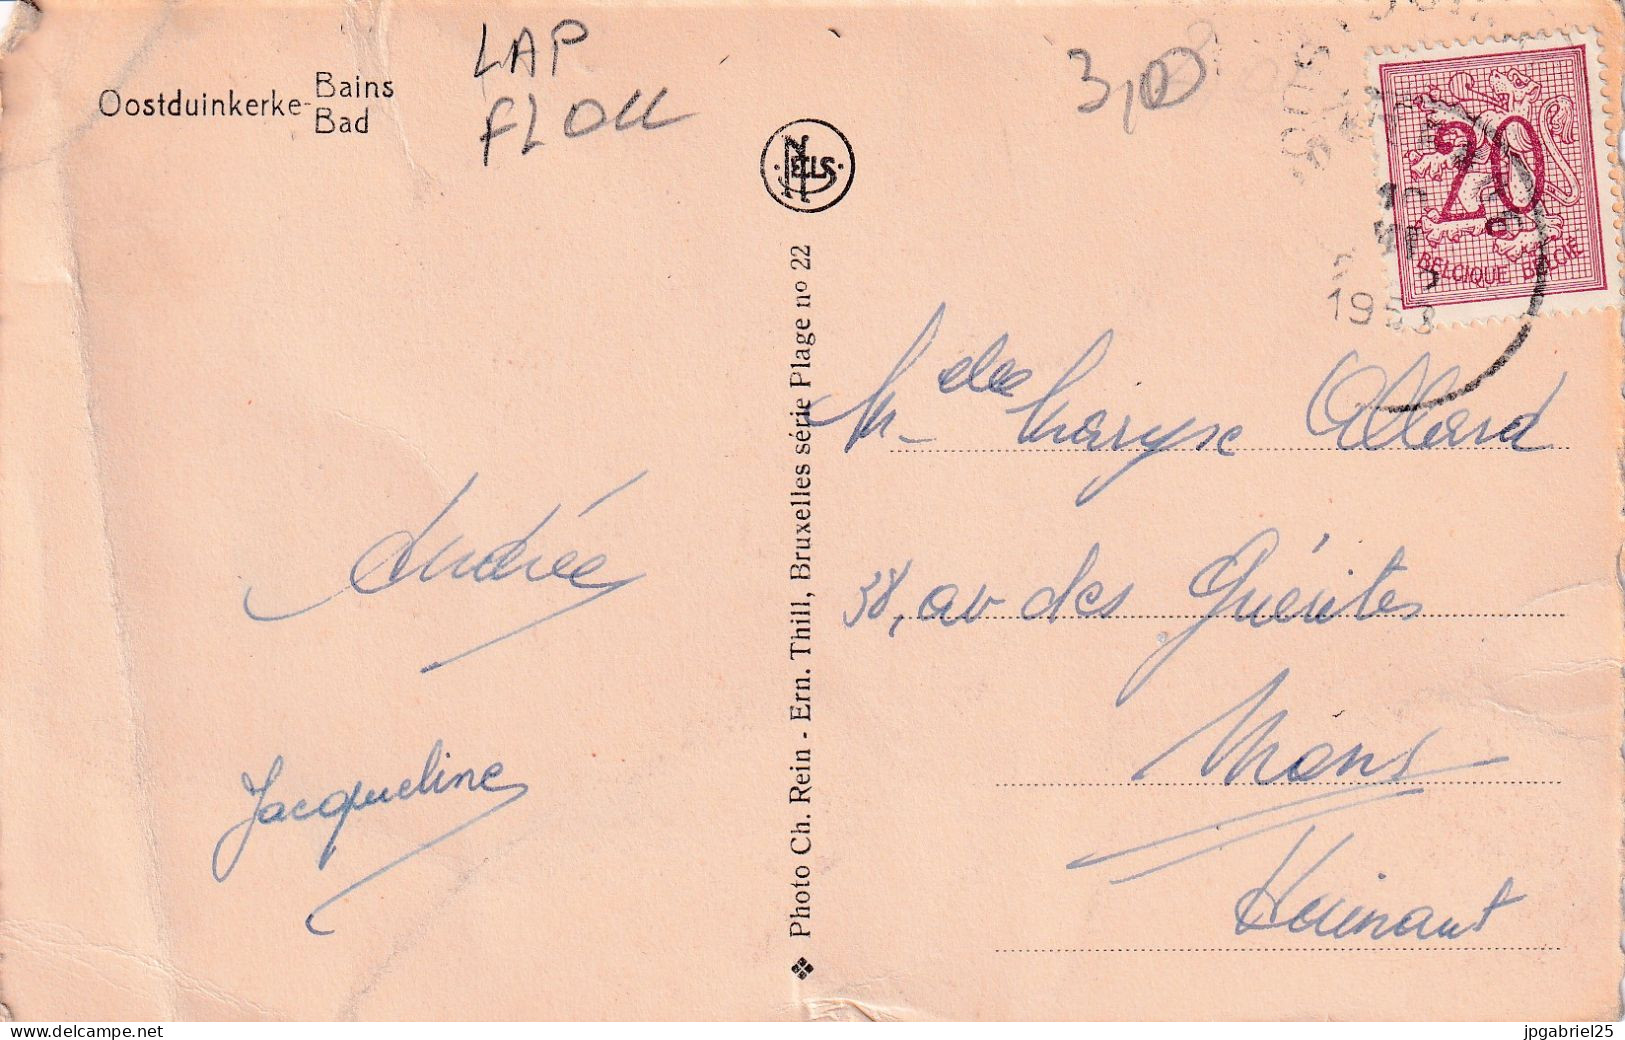 Oostduinkerke-Bains
Bad
LAP
FLOU
3,00
NELS
20
BELGIQUE BELGIE
1953
Photo Ch. Rein - Ern. Thill, Bruxelles série Plage nº 22
Andrée
Jacqueline
Mdlle Maryse Allard
38, av des Guérites
Mons
Hainaut
www.delcampe.net
jpgabriel25